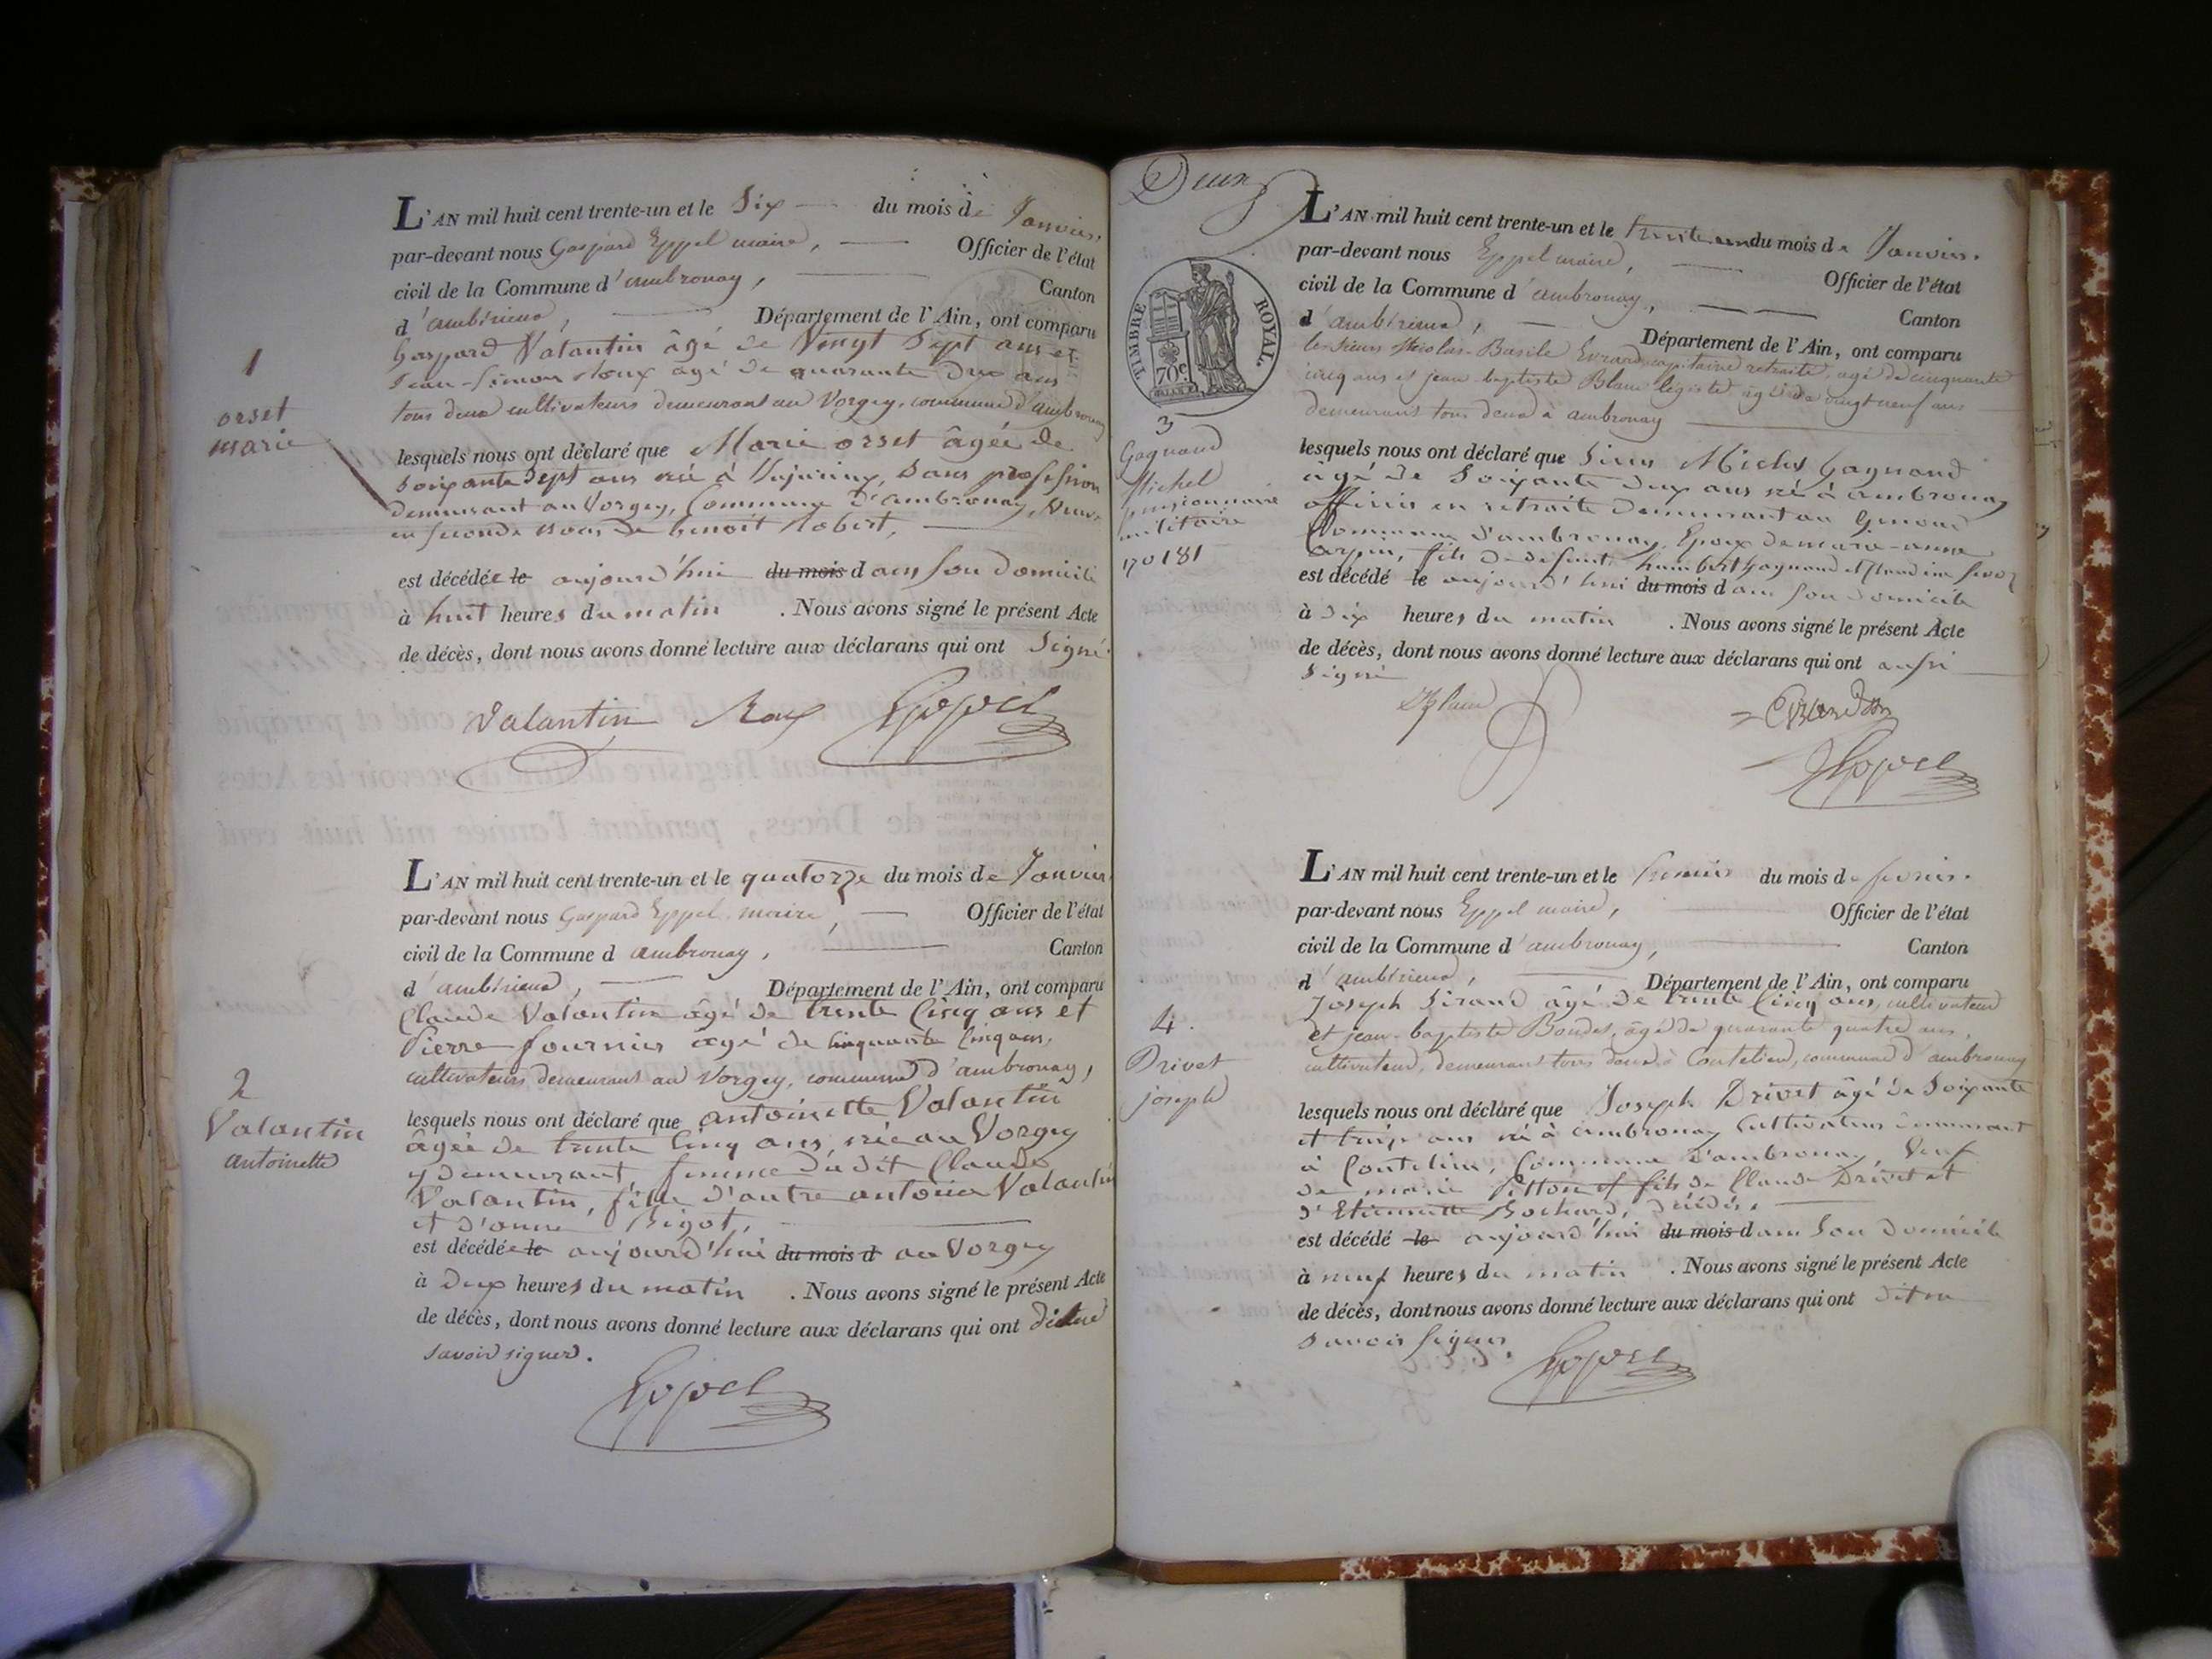 L'AN mil huit cent trente-un et le Six du mois de Janvier,
par-devant nous Gaspard Eppel maire, Officier de l'état
civil de la Commune d'ambronay, Canton
d'ambérieux, Département de l'Ain, ont comparu
Gaspard Valantin âgé de Vingt Sept ans et
Jean-Simon Roux âgé de quarante deux ans
tous deux cultivateurs demeurant au Vorgey, commune d'ambronay
1
orset
marie
lesquels nous ont déclaré que Marie orset âgée de
soixante Sept ans née à Jujurieux, Sans profession
demeurant au Vorgey, Commune d'ambronay, Veuve
en seconde noces de benoit Robert,
est décédée le aujourd'hui du mois dans son Domicile
à huit heures du matin . Nous avons signé le présent Acte
de décès, dont nous avons donné lecture aux déclarans qui ont Signé
Valantin Roux Eppel
L'AN mil huit cent trente-un et le quatorze du mois de Janvier
par-devant nous Gaspard Eppel maire, Officier de l'état
civil de la Commune d ambronay, Canton
d'ambérieux, Département de l'Ain, ont comparu
Claude Valantin âgé de trente Cinq ans et
Pierre fournier âgé de cinquante Cinq ans,
cultivateurs demeurant au Vorgey, commune d'ambronay,
2
Valantin
antoinette
lesquels nous ont déclaré que antoinette Valantin
âgée de trente Cinq ans née au Vorgey
y demeurant, femme du dit Claude
Valantin, fille d'autre antoine Valantin
et d'anne Bigot,
est décédée le aujourd'hui du mois d au Vorgey
à Deux heures du matin . Nous avons signé le présent Acte
de décès, dont nous avons donné lecture aux déclarans qui ont dit ne
savoir signer.
Eppel
Deux
L'AN mil huit cent trente-un et le trente un du mois de Janvier.
par-devant nous Eppel maire, Officier de l'état
civil de la Commune d'ambronay, Canton
d'ambérieux, Département de l'Ain, ont comparu
les Sieurs Nicolas-Basile Evrard capitaine retraité, agé de cinquante
cinq ans et jean baptiste Blanc légiste agé de vingt neuf ans
demeurant tous deux à ambronay
TIMBRE ROYAL.
70c.
3
Gagnand
Michel
pensionnaire
militaire
170181
lesquels nous ont déclaré que Sieur Michel Gagnand
âgé de Soixante deux ans né à ambronay
officier en retraite Demeurant au
Commune d'ambronay, Epoux de marie-anne
fils de défunts humbert Gagnand et
est décédé le aujourd'hui du mois dans son domicile
à Dix heures du matin . Nous avons signé le présent Acte
de décès, dont nous avons donné lecture aux déclarans qui ont aussi
signé
Blanc Evrard
Eppel
L'AN mil huit cent trente-un et le Premier du mois de fevrier.
par-devant nous Eppel maire, Officier de l'état
civil de la Commune d'ambronay, Canton
d'ambérieux, Département de l'Ain, ont comparu
Joseph Sirand âgé de trente Cinq ans, cultivateur
et jean-baptiste Boudes, âgé de quarante quatre ans,
cultivateur, demeurant tous deux à Coutelieu, commune d'ambronay
4.
Drivet
joseph
lesquels nous ont déclaré que Joseph Drivet âgé de Soixante
et treize ans né à ambronay Cultivateur demeurant
à Coutelieu, Commune d'ambronay, Veuf
de marie Pitton et fils de Claude Drivet et
d'Etiennette Bochard, décédés.
est décédé le aujourd'hui du mois dans Son domicile
à neuf heures du matin . Nous avons signé le présent Acte
de décès, dont nous avons donné lecture aux déclarans qui ont dit ne
Savoir signer.
Eppel